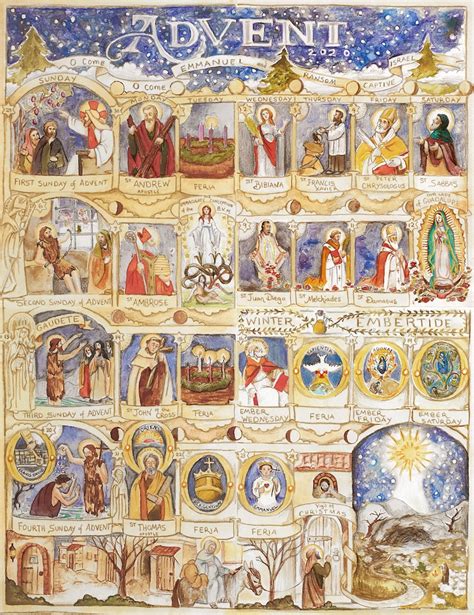 ADVENT
2020
O COME
O COME
EMMANUEL
RANSOM
CAPTIVE
ISRAEL
SUNDAY
MONDAY
TUESDAY
WEDNESDAY
THURSDAY
FRIDAY
SATURDAY
FIRST SUNDAY OF ADVENT
ST ANDREW
APOSTLE
FERIA
ST BIBIANA
ST FRANCIS
XAVIER
ST PETER
CHRYSOLOGUS
ST SABBAS
IMMACULATE CONCEPTION
GUADALUPE
SECOND SUNDAY OF ADVENT
ST AMBROSE
ST Juan Diego
ST Melchiades
ST Damasus
GAUDETE
WINTER
EMBERTIDE
THIRD SUNDAY OF ADVENT
ST JOHN OF THE
CROSS
FERIA
EMBER
WEDNESDAY
FERIA
EMBER
FRIDAY
EMBER
SATURDAY
FOURTH SUNDAY OF ADVENT
ST THOMAS
APOSTLE
FERIA
FERIA
EMMANUEL
VIGIL OF
CHRISTMAS